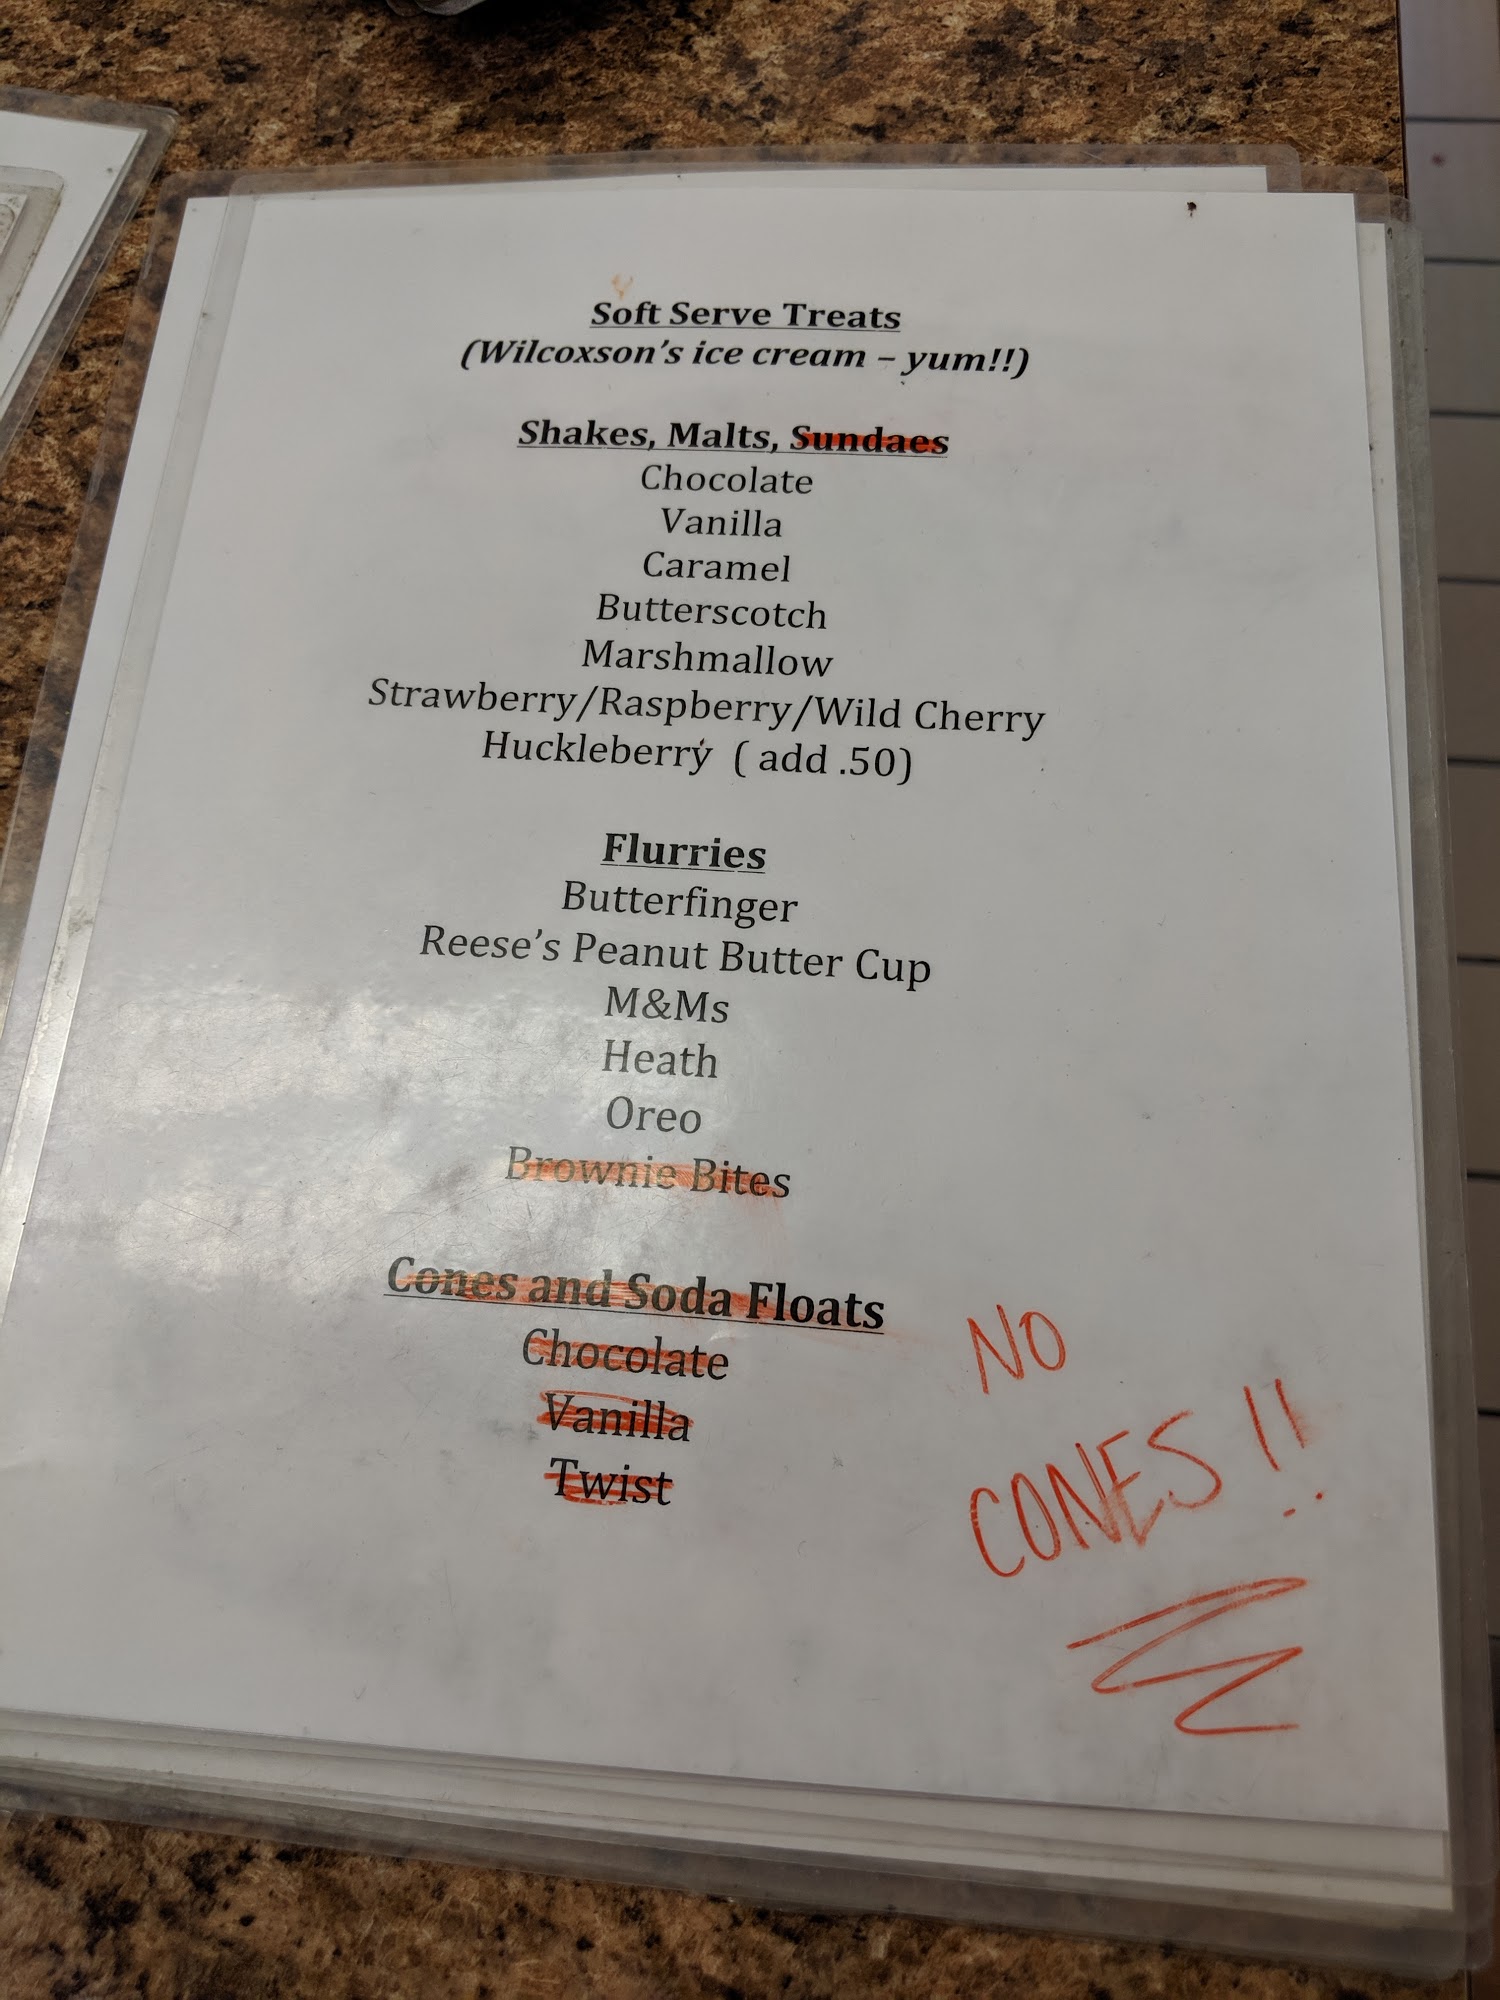 Soft Serve Treats
(Wilcoxson's ice cream – yum!!)
Shakes, Malts, Sundaes
Chocolate
Vanilla
Caramel
Butterscotch
Marshmallow
Strawberry/Raspberry/Wild Cherry
Huckleberry ( add .50)
Flurries
Butterfinger
Reese's Peanut Butter Cup
M&Ms
Heath
Oreo
Brownie Bites
Cones and Soda Floats
Chocolate
Vanilla
Twist
NO
CONES!!